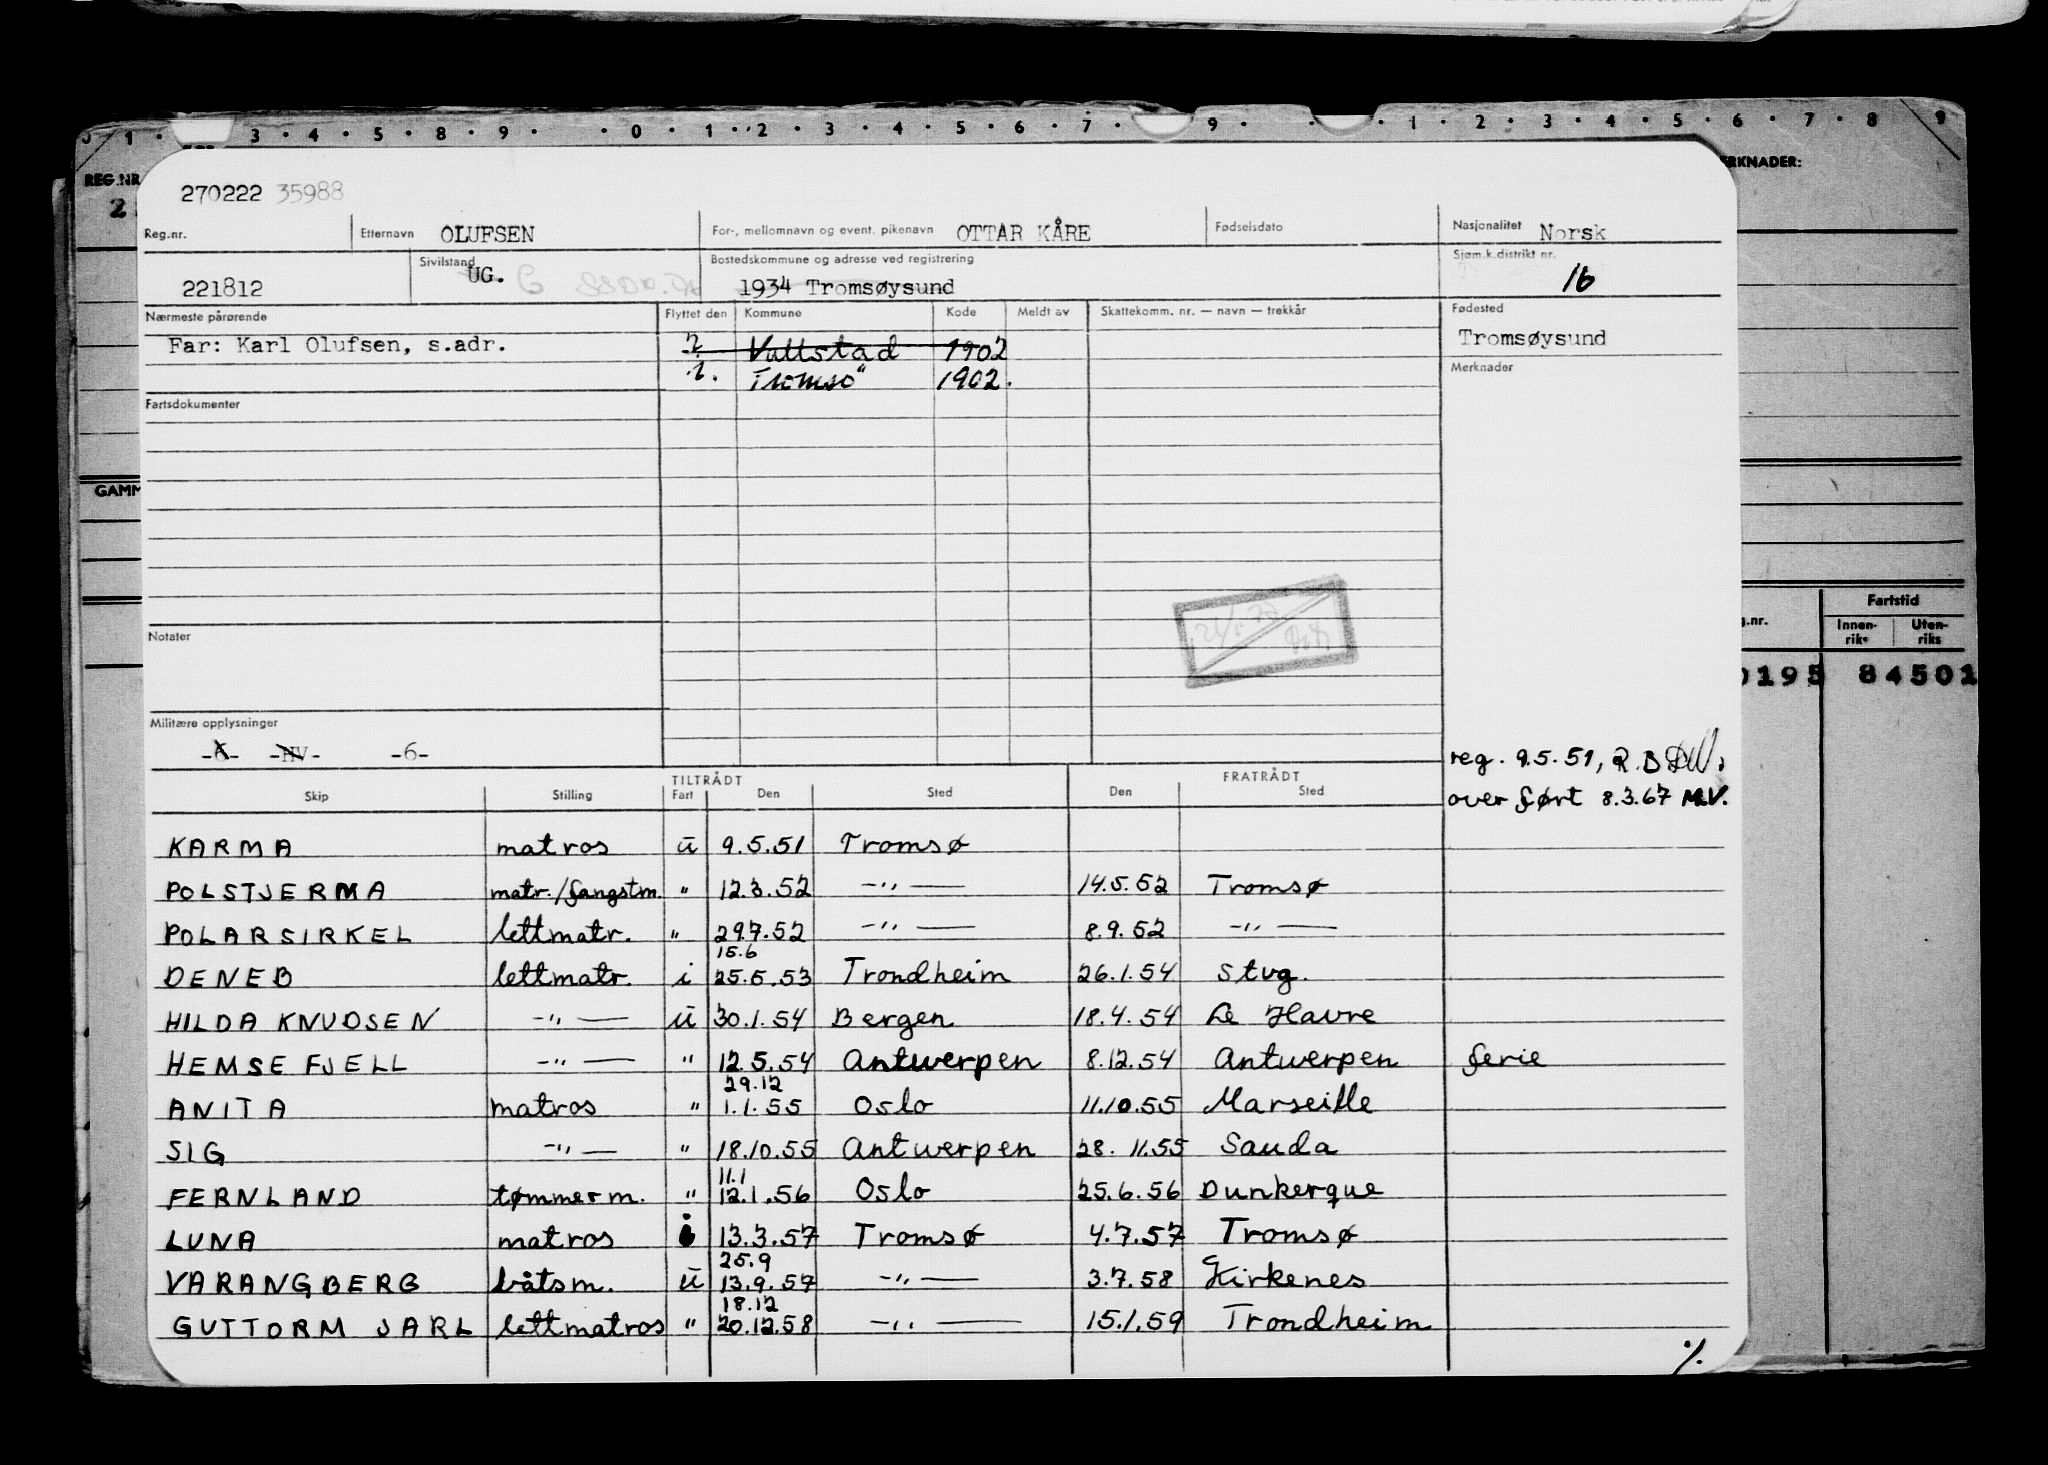 0 1 · 3 · 4 · 5 · 8 · 9 · · 0 · 1 · 2 · 3 · 4 · 5 · 6 · 7 · 9 · · 1 · 2 · 3 · 4 · 5 · 6 · 7 · 8 9
REG.NR
ERKNADER:
2
270222 35988
Reg.nr. Etternavn OLUFSEN For-, mellomnavn og event. pikenavn OTTAR KÅRE Fødselsdato Nasjonalitet Norsk
221812 Sivilstand UG. Bostedskommune og adresse ved registrering Sjøm.k.distrikt nr.
1934 Tromsøysund 16
Nærmeste pårørende Flyttet den Kommune Kode Meldt av Skattekomm. nr. — navn — trekkår Fødested
Far: Karl Olufsen, s.adr. 1902 Tromsøysund
Tromsø 1902. Merknader
Fartsdokumenter
GAMM
Fartstid
g.nr. Innen-riks Uten-riks
0195 84501
Notater
Militære opplysninger
-6- -HV- -6-
reg. 9.5.51, R.B
overført 8.3.67 M.V.
TILTRÅDT FRATRÅDT
Skip Stilling Fart Den Sted Den Sted
KARMA matros ū 9.5.51 Tromsø
POLSTJERMA matr./fangstm. " 12.3.52 —"— 14.5.52 Tromsø
POLARSIRKEL lettmatr. " 29.7.52 —"— 8.9.52 —"—
15.6
DENEB lettmatr. i 25.5.53 Trondheim 26.1.54 Stvg.
HILDA KNUDSEN —"— ū 30.1.54 Bergen 18.4.54 Le Havre
HEMSEFJELL —"— " 12.5.54 Antwerpen 8.12.54 Antwerpen ferie
29.12
ANITA matros " 1.1.55 Oslo 11.10.55 Marseille
SIG —"— " 18.10.55 Antwerpen 28.11.55 Sauda
11.1
FERNLAND tømmerm. " 12.1.56 Oslo 25.6.56 Dunkerque
LUNA matros i 13.3.57 Tromsø 4.7.57 Tromsø
25.9
VARANGBERG båtsm. ū 13.9.57 —"— 3.7.58 Kirkenes
18.12
GUTTORM JARL lettmatros " 20.12.58 —"— 15.1.59 Trondheim
./.